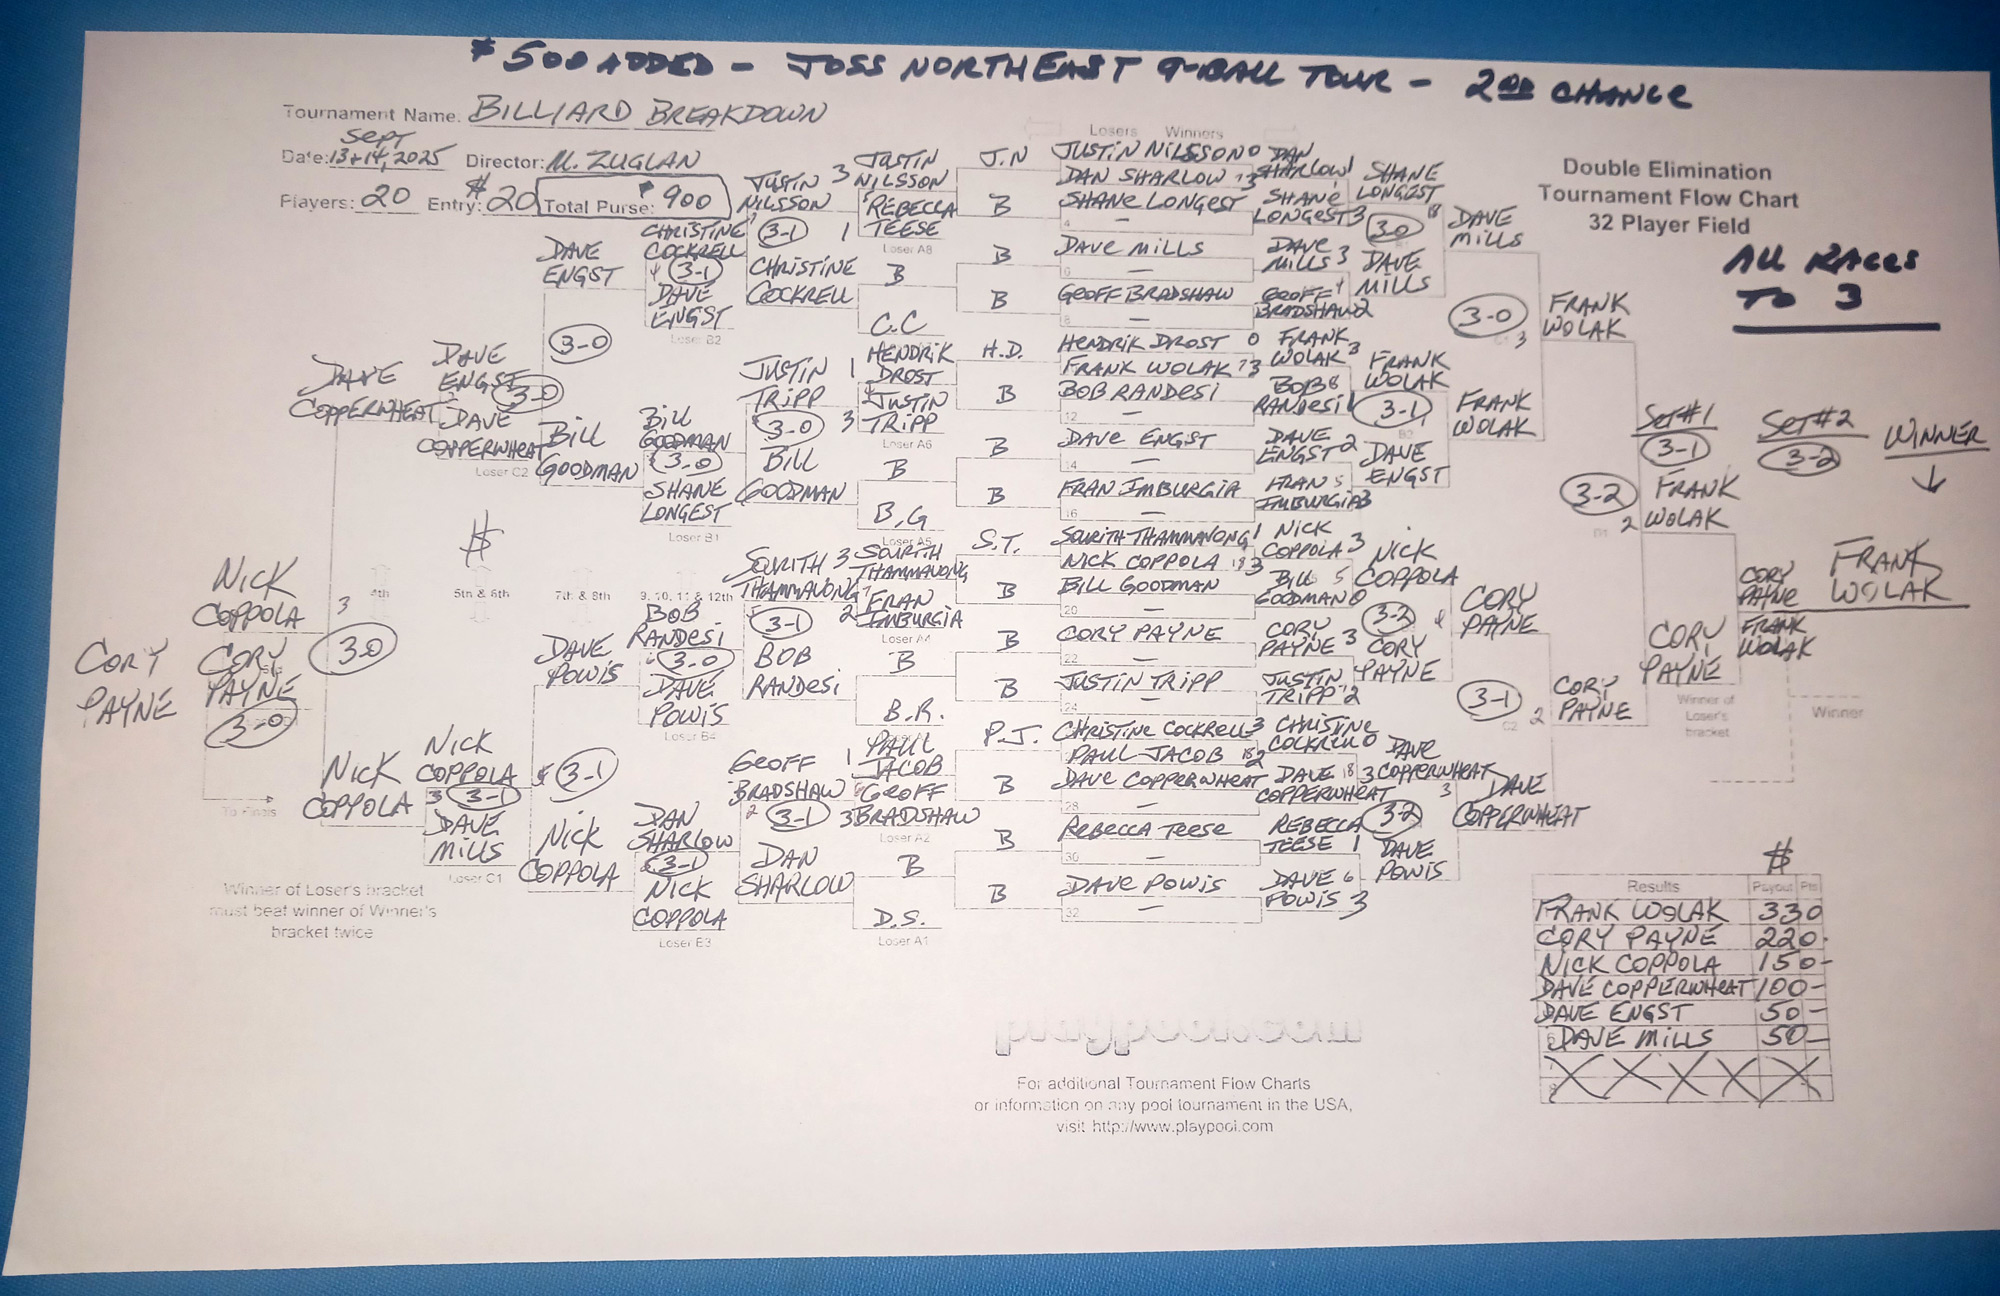 $500 ADDED - JOSS NORTHEAST 9-BALL TOUR - 2ND CHANCE
Tournament Name: BILLIARD BREAKDOWN
Date: SEPT 13+14, 2025 Director: M. ZUGLAN
Players: 20 Entry: $20 Total Purse: $900
Losers Winners
Double Elimination
Tournament Flow Chart
32 Player Field
ALL RACES
TO 3
JUSTIN NILSSON 0
DAN SHARLOW 3
SHANE LONGEST
4 —
DAVE MILLS
6 —
GEOFF BRADSHAW
8 —
HENDRIK DROST 0
FRANK WOLAK 3
BOB RANDESI
12 —
DAVE ENGST
14 —
FRAN IMBURGIA
16 —
SOURITH THAMMAVONG 1
NICK COPPOLA 3
BILL GOODMAN
20 —
CORY PAYNE
22 —
JUSTIN TRIPP
24 —
CHRISTINE COCKRELL 3
PAUL JACOB 2
DAVE COPPERWHEAT
28 —
REBECCA TEESE
30 —
DAVE POWIS
32 —
DAN SHARLOW 1
SHANE LONGEST 3
DAVE MILLS 3
GEOFF BRADSHAW 2
FRANK WOLAK 3
BOB RANDESI 1
DAVE ENGST
FRAN IMBURGIA
NICK COPPOLA 3
BILL GOODMAN 0
CORY PAYNE 3
JUSTIN TRIPP 2
CHRISTINE COCKRELL 0
DAVE COPPERWHEAT 3
REBECCA TEESE 1
DAVE POWIS 3
SHANE LONGEST
3-0
DAVE MILLS
FRANK WOLAK
3-1
DAVE ENGST
NICK COPPOLA
3-2
CORY PAYNE
DAVE COPPERWHEAT
3-2
DAVE POWIS
DAVE MILLS
3-0
FRANK WOLAK
CORY PAYNE
3-1
DAVE COPPERWHEAT
FRANK WOLAK
3-2
CORY PAYNE
SET #1
3-1
FRANK WOLAK
CORY PAYNE
Winner of
Loser's
bracket
SET #2
3-2
CORY PAYNE
FRANK WOLAK
WINNER
FRANK WOLAK
Winner
J.N
B
B
B
H.D.
B
B
B
S.T.
B
B
B
P.J.
B
B
B
JUSTIN NILSSON 3
REBECCA TEESE 1
Loser A8
B
C.C
HENDRIK DROST 1
JUSTIN TRIPP 3
Loser A6
B
B.G
Loser A5
SOURITH THAMMAVONG 3
FRAN IMBURGIA 2
Loser A4
B
B.R.
PAUL JACOB 1
GEOFF BRADSHAW 3
Loser A2
B
D.S.
Loser A1
JUSTIN NILSSON
3-1
CHRISTINE COCKRELL
JUSTIN TRIPP
3-0
BILL GOODMAN
SOURITH THAMMAVONG
3-1
BOB RANDESI
GEOFF BRADSHAW
3-1
DAN SHARLOW
CHRISTINE COCKRELL
3-1
DAVE ENGST
Loser B2
BILL GOODMAN
3-0
SHANE LONGEST
Loser B1
BOB RANDESI
3-0
DAVE POWIS
Loser B4
DAN SHARLOW
3-1
NICK COPPOLA
Loser B3
DAVE ENGST
3-0
BILL GOODMAN
DAVE POWIS
3-1
NICK COPPOLA
DAVE ENGST
3-0
DAVE COPPERWHEAT
Loser C2
NICK COPPOLA
3-1
DAVE MILLS
Loser C1
DAVE COPPERWHEAT
3-0
NICK COPPOLA
NICK COPPOLA
CORY PAYNE
3-0
CORY PAYNE
To Finals
$
4th 5th & 6th 7th & 8th 9, 10, 11 & 12th
Winner of Loser's bracket
must beat winner of Winner's
bracket twice
playpool.com
For additional Tournament Flow Charts
or information on any pool tournament in the USA,
visit http://www.playpool.com
$
Results Payout Pts
FRANK WOLAK 330
CORY PAYNE 220-
NICK COPPOLA 150-
DAVE COPPERWHEAT 100-
DAVE ENGST 50-
DAVE MILLS 50-
7
8